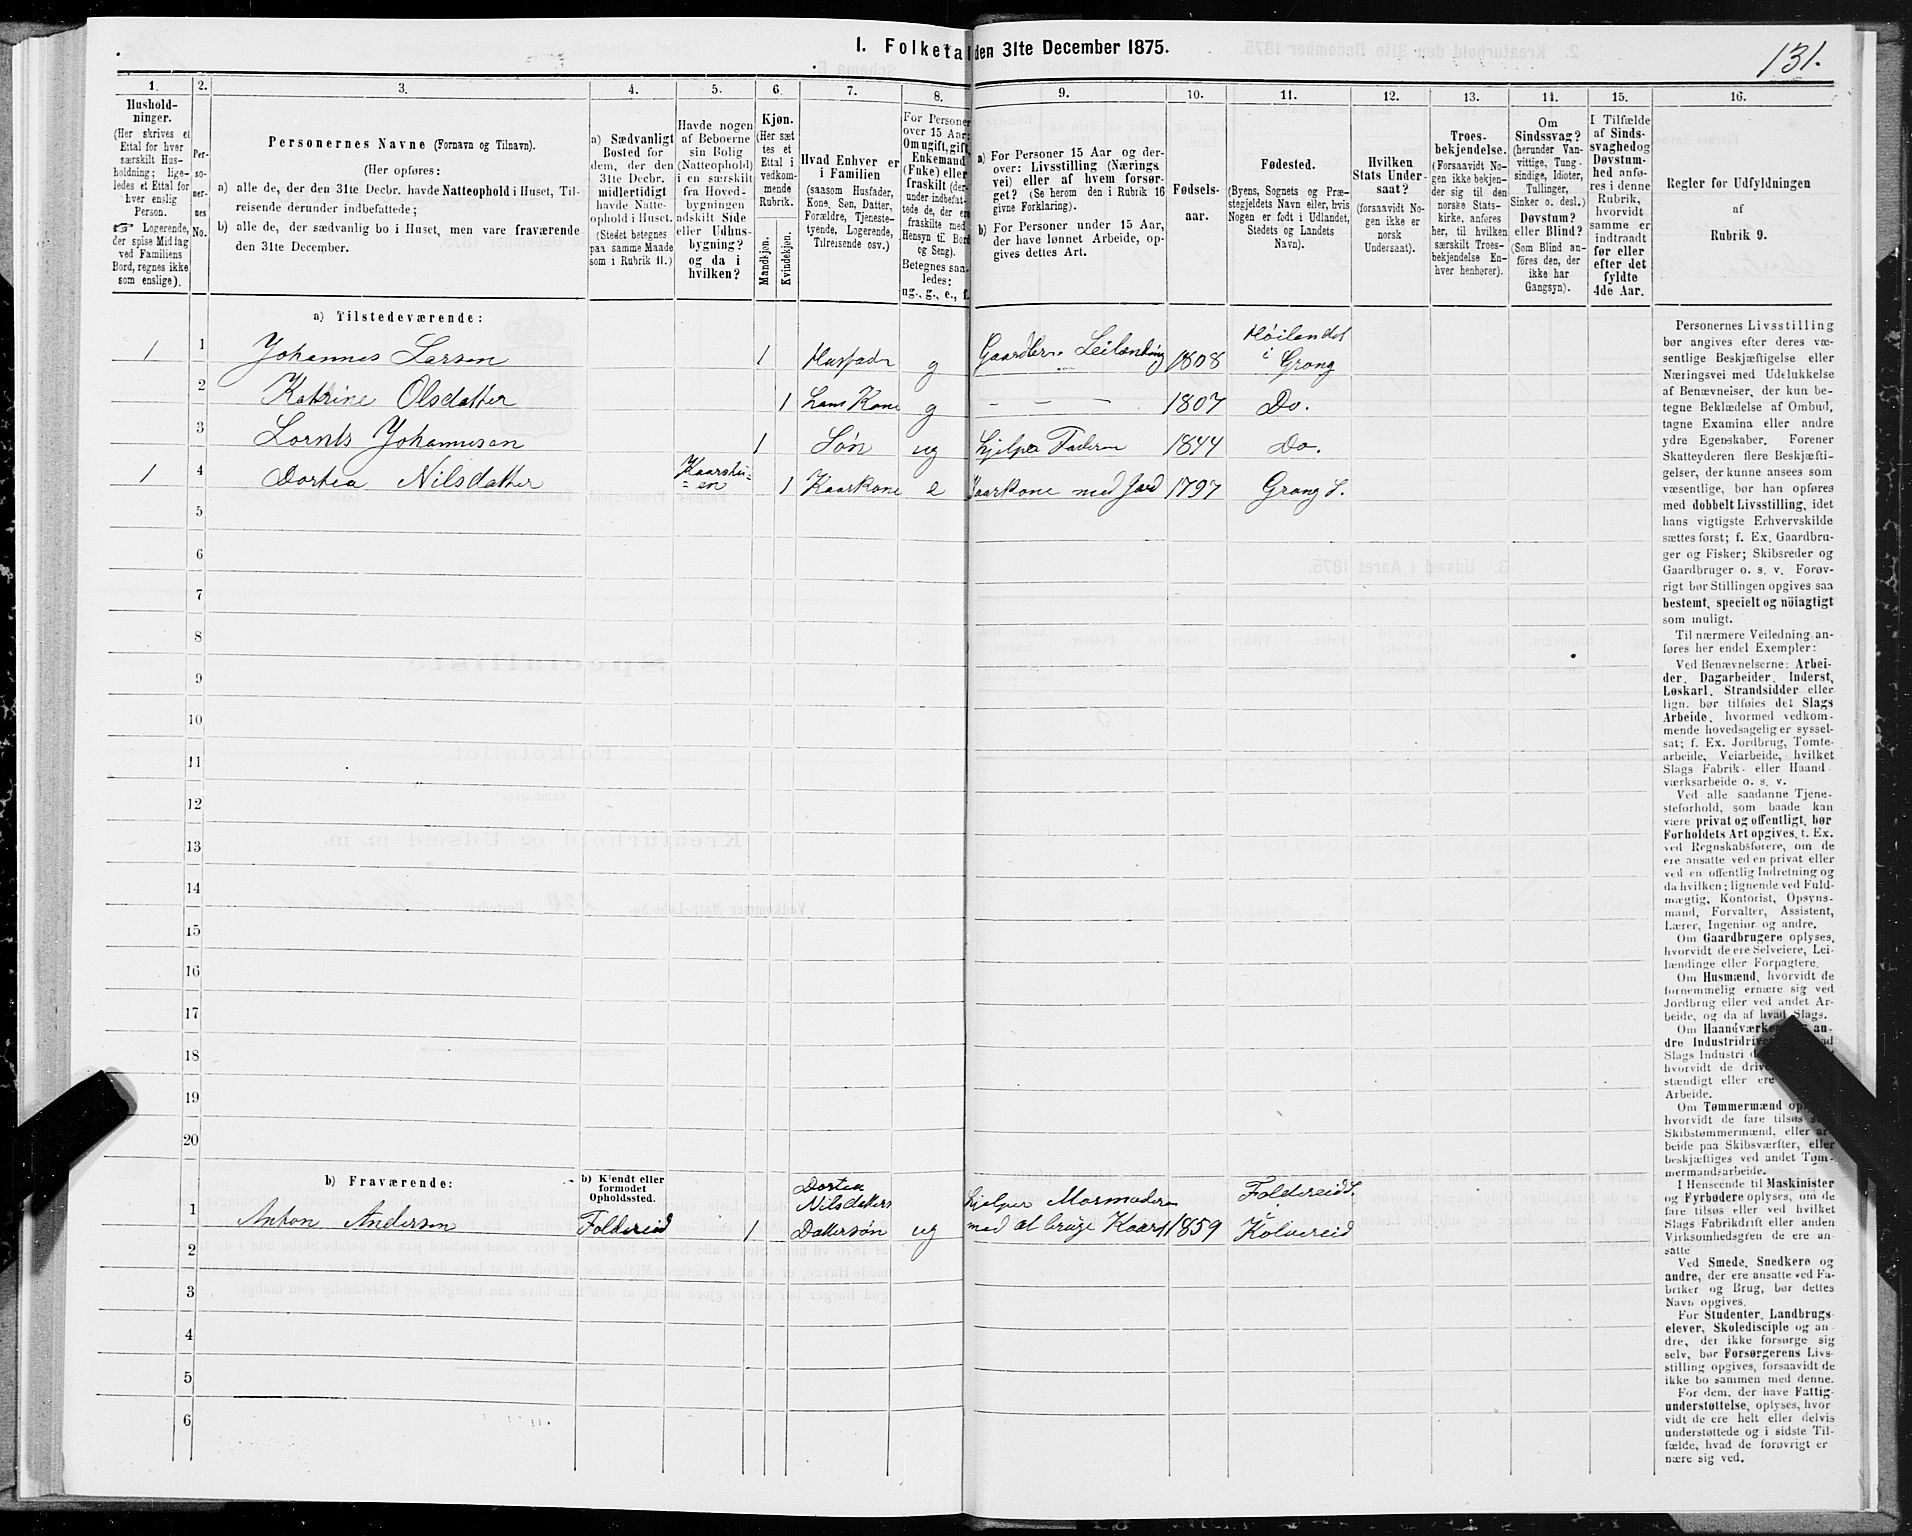 1. Folketal den 31te December 1875.
131.
1.
2.
3.
4.
5.
6.
7.
8.
9.
10.
11.
12.
13.
14.
15.
16.
Hushold-
ninger.
(Her skrives et
Ettal for hver
særskilt Hus-
holdning; lige-
ledes et Ettal for
hver enslig
Person.
☞ Logerende,
der spise Middag
ved Familiens
Bord, regnes ikke
som enslige).
Per-
so-
ner-
nes
No.
Personernes Navne (Fornavn og Tilnavn).
(Her opføres:
a) alle de, der den 31te Decbr. havde Natteophold i Huset, Til-
reisende derunder indbefattede;
b) alle de, der sædvanlig bo i Huset, men vare fraværende
den 31te December.
a) Sædvanligt
Bosted for
dem, der den
31te Decbr.
midlertidigt
havde Natte-
ophold i Huset.
(Stedet betegnes
paa samme Maade
som i Rubrik 11.)
Havde nogen
af Beboerne
sin Bolig
(Natteophold)
i en særskilt
fra Hoved-
bygningen
adskilt Side
eller Udhus-
bygning?
og da i
hvilken?
Kjøn.
(Her sæt-
tes et
Ettal i
vedkom-
mende
Rubrik.
Mandkjøn.
Kvindekjøn.
Hvad Enhver er
i Familien
(saasom Husfader,
Kone, Søn, Datter,
Forældre, Tjeneste-
tyende, Logerende,
Tilreisende osv.)
For Personer
over 15 Aar:
Om ugift, gift,
Enkemand
(Enke) eller
fraskilt (der-
under indbefat-
tede de, der ere
fraskilte med
Hensyn til Bord
og Seng).
Betegnes saa-
ledes:
ug., g., e., f.
a) For Personer 15 Aar og der-
over: Livsstilling (Nærings
vei) eller af hvem forsør-
get? (Se herom den i Rubrik 16
givne Forklaring).
b) For Personer under 15 Aar,
der have lønnet Arbeide, op-
gives dettes Art.
Fødsels-
aar.
Fødested.
(Byens, Sognets og Præ-
stegjeldets Navn eller, hvis
Nogen er født i Udlandet,
Stedets og Landets
Navn).
Hvilken
Stats Under-
saat?
(forsaavidt No-
gen ikke er
norsk
Undersaat).
Troes-
bekjendelse.
(Forsaavidt No-
gen ikke bekjen-
der sig til den
norske Stats-
kirke, anføres
her, til hvilken
særskilt Troes-
bekjendelse En-
hver henhører).
Om
Sindssvag?
(herunder Van-
vittige, Tung-
sindige, Idioter,
Tullinger,
Sinker o. desl.)
Døvstum?
eller Blind?
(Som Blind an-
føres den, der
ikke har
Gangsyn).
I Tilfælde
af Sinds-
svaghed og
Døvstum-
hed anfø-
res i denne
Rubrik,
hvorvidt
samme er
indtraadt
før eller
efter det
fyldte
4de Aar.
Regler for Udfyldningen
af
Rubrik 9.
a) Tilstedeværende:
1 1 Johannes Larsen 1 Husfader g Gaardbr. Leilending 1808 Høilandet
i Grong
2 Katrine Olsdatter 1 hans Kone g – – – 1807 Do.
3 Lornts Johannesen 1 Søn ug hjelper Faderen 1844 Do.
1 4 Dortea Nilsdatter Kaarstu-
en 1 Kaarkone e Kaarkone med Jord 1797 Grong S.
5
6
7
8
9
10
11
12
13
14
15
16
17
18
19
20
b) Fraværende:
b) Kjendt eller
formodet
Opholdssted.
1 Anton Andersen Foldereid 1 Dortea
Nilsdatters
Dattersøn ug hjelper Mormoderen
med at bruge Kaarj 1859 Foldereid S.
Kolvereid
2
3
4
5
6
Personernes Livsstilling
bør angives efter deres væ-
sentlige Beskjæftigelse eller
Næringsvei med Udelukkelse
af Benævneiser, der kun be-
tegne Beklædelse af Ombud,
tagne Examina eller andre
ydre Egenskaber. Forener
Skatteyderen flere Beskjæfti-
gelser, der kunne ansees som
væsentlige, bør han opføres
med dobbelt Livsstilling, idet
hans vigtigste Erhvervskilde
sættes først; f. Ex. Gaardbru-
ger og Fisker; Skibsreder og
Gaardbruger o. s. v. Forøv-
rigt bør Stillingen opgives saa
bestemt, specielt og nöiagtigt
som muligt.
Til nærmere Veiledning an-
føres her endel Exempler:
Ved Benævnelserne: Arbei-
der, Dagarbeider, Inderst,
Løskarl, Strandsidder eller
lign. bør tilføies det Slags
Arbeide, hvormed vedkom-
mende hovedsagelig er syssel-
sat; f. Ex. Jordbrug, Tomte-
arbeide, Veiarbeide, hvilket
Slags Fabrik- eller Haand-
værksarbeide o. s. v.
Ved alle saadanne Tjene-
steforhold, som baade kan
være privat og offentligt, bør
Forholdets Art opgives, t. Ex.
ved Regnskabsførere, om de
ere ansatte ved en privat eller
ved en offentlig Indretning og
da hvilken; lignende ved Fuld-
mægtig, Kontorist, Opsyns-
mand, Forvalter, Assistent,
Lærer, Ingeniør og andre.
Om Gaardbrugere oplyses,
hvorvidt de ere Selveiere, Lei-
lændinge eller Forpagtere.
Om Husmænd, hvorvidt de
fornemmelig ernære sig ved
Jordbrug eller ved andet Ar-
beide, og da af hvad Slags.
Om Haandværkere og an-
dre Industridri
Slags Industri
hvorvidt de
stændigt eller ere
Arbeide.
Om Tømmermænd
hvorvidt de fare tilsøs
Skibstømmermænd, eller ar-
beide paa Skibsværfter, eller
beskjæftiges ved andet Tøm-
mermandsarbeide.
I Henseende til Maskinister
og Fyrbødere oplyses, om de
fare tilsøs eller ved hvilket
Slags Fabrikdrift eller anden
Virksomhedsgren de ere an-
satte
Ved Smede, Snedkere og
andre, der ere ansatte ved Fa-
briker og Brug, bør dettes
Navn opgives.
For Studenter, Landbrugs-
elever, Skoledisciple og an-
dre, der ikke forsørge sig
selv, bør Forsørgerens Livs-
stilling opgives, forsaavidt de
ikke bo sammen med denne.
For dem, der have Fattig-
understøttelse, oplyses, hvor-
vidt de ere helt eller delvis
understøttede og i sidste Til-
fælde, hvad de forøvrigt er
nære sig ved.